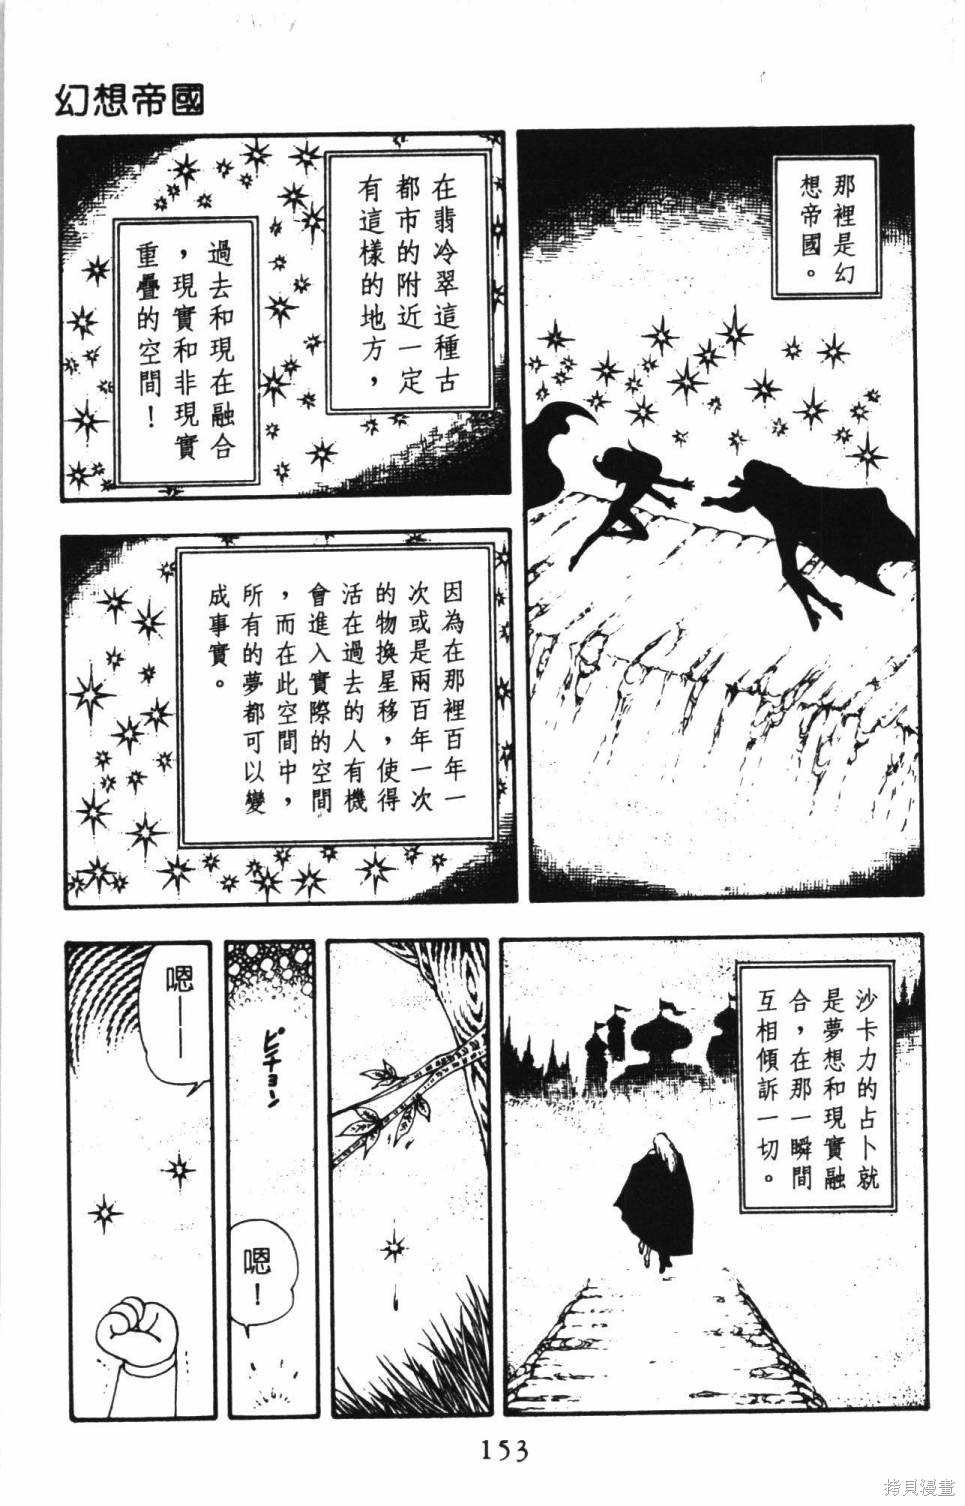 幻想帝國
那裡是幻
想帝國。
在翡冷翠這種古
都市的附近一定
有這樣的地方，
過去和現在融合
，現實和非現實
重疊的空間！
因為在那裡百年一
次或是兩百年一次
的物換星移，使得
活在過去的人有機
會進入實際的空間
，而在此空間中，
所有的夢都可以變
成事實。
沙卡力的占卜就
是夢想和現實融
合，在那一瞬間
互相傾訴一切。
ピチョン
嗯！
嗯——
153
拷貝漫畫